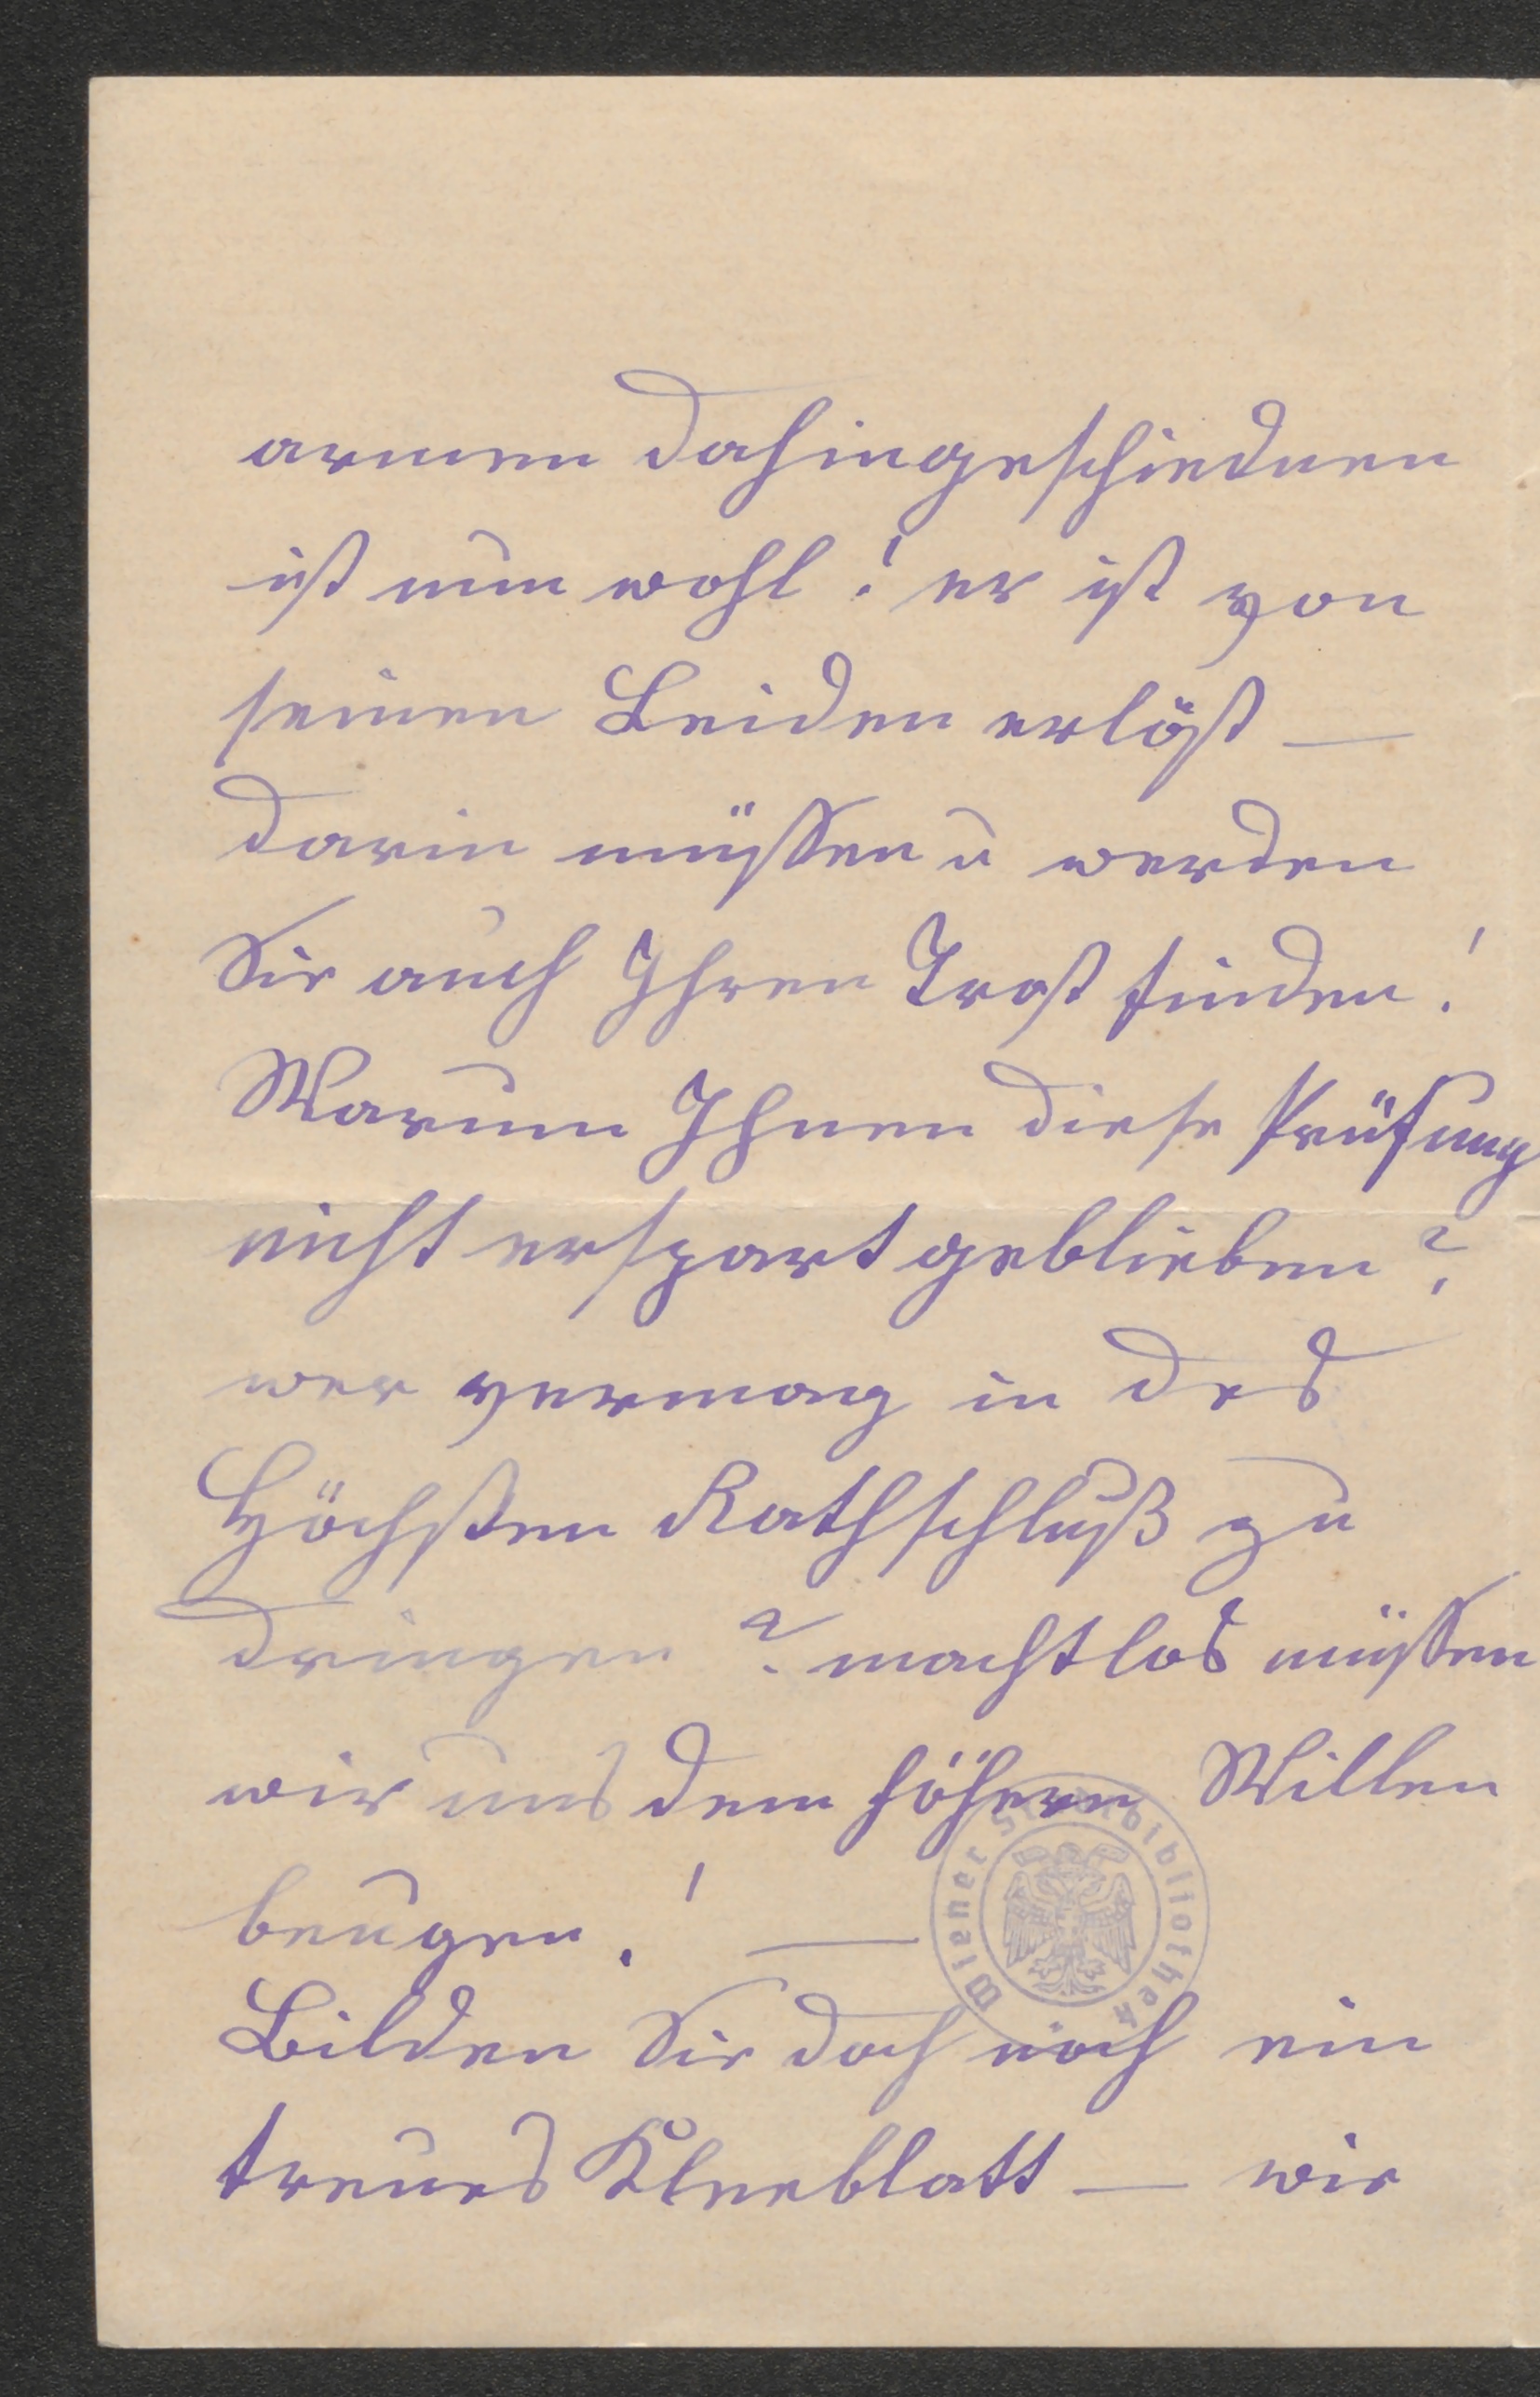 armen Dahingeschiednen
ist nun wohl! er ist von
seinen Leiden erlöst —
darin müssen u werden
Sie auch Ihren Trost finden!
Warum Ihnen diese Prüfung
nicht erspart geblieben?
wer vermag in des
Höchsten Rathschluß zu
dringen? machtlos müssen
wir uns dem höhern Willen
beugen! —
Bilden Sie doch noch ein
treues Kleeblatt — wir
Wiener Stadtbibliothek